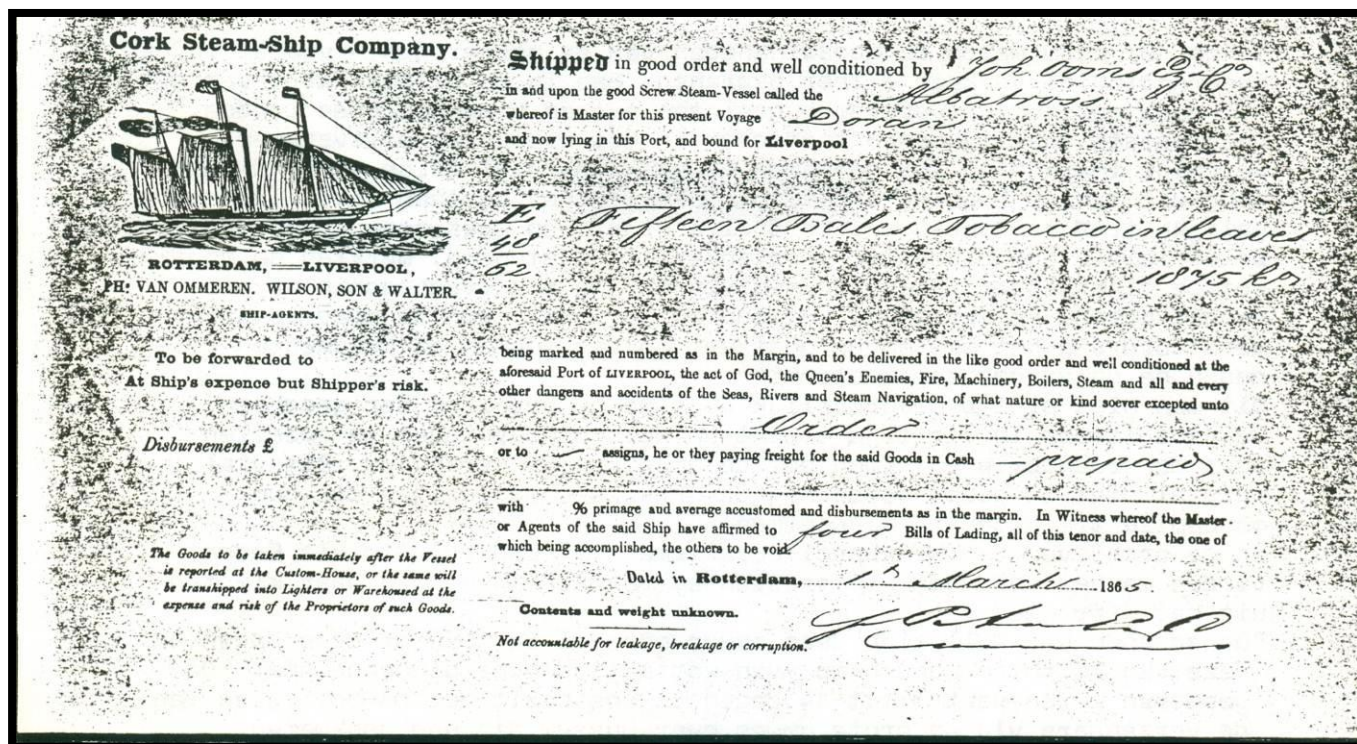 Cork Steam-Ship Company.
ROTTERDAM, LIVERPOOL,
PH: VAN OMMEREN. WILSON, SON & WALTER.
SHIP-AGENTS.
To be forwarded to
At Ship's expence but Shipper's risk.
Disbursements £
The Goods to be taken immediately after the Vessel
is reported at the Custom-House, or the same will
be transhipped into Lighters or Warehoused at the
expense and risk of the Proprietors of such Goods.
Shipped in good order and well conditioned by Joh. Ooms & Co
in and upon the good Screw Steam-Vessel called the Albatross
whereof is Master for this present Voyage Doran
and now lying in this Port, and bound for Liverpool
E Fifteen Bales Tobacco in leaves
48
62 1875 ko
being marked and numbered as in the Margin, and to be delivered in the like good order and well conditioned at the
aforesaid Port of LIVERPOOL, the act of God, the Queen's Enemies, Fire, Machinery, Boilers, Steam and all and every
other dangers and accidents of the Seas, Rivers and Steam Navigation, of what nature or kind soever excepted unto
Order
or to assigns, he or they paying freight for the said Goods in Cash — prepaid
with % primage and average accustomed and disbursements as in the margin. In Witness whereof the Master
or Agents of the said Ship have affirmed to four Bills of Lading, all of this tenor and date, the one of
which being accomplished, the others to be void.
Dated in Rotterdam, 1st March 1865.
Contents and weight unknown.
Not accountable for leakage, breakage or corruption.